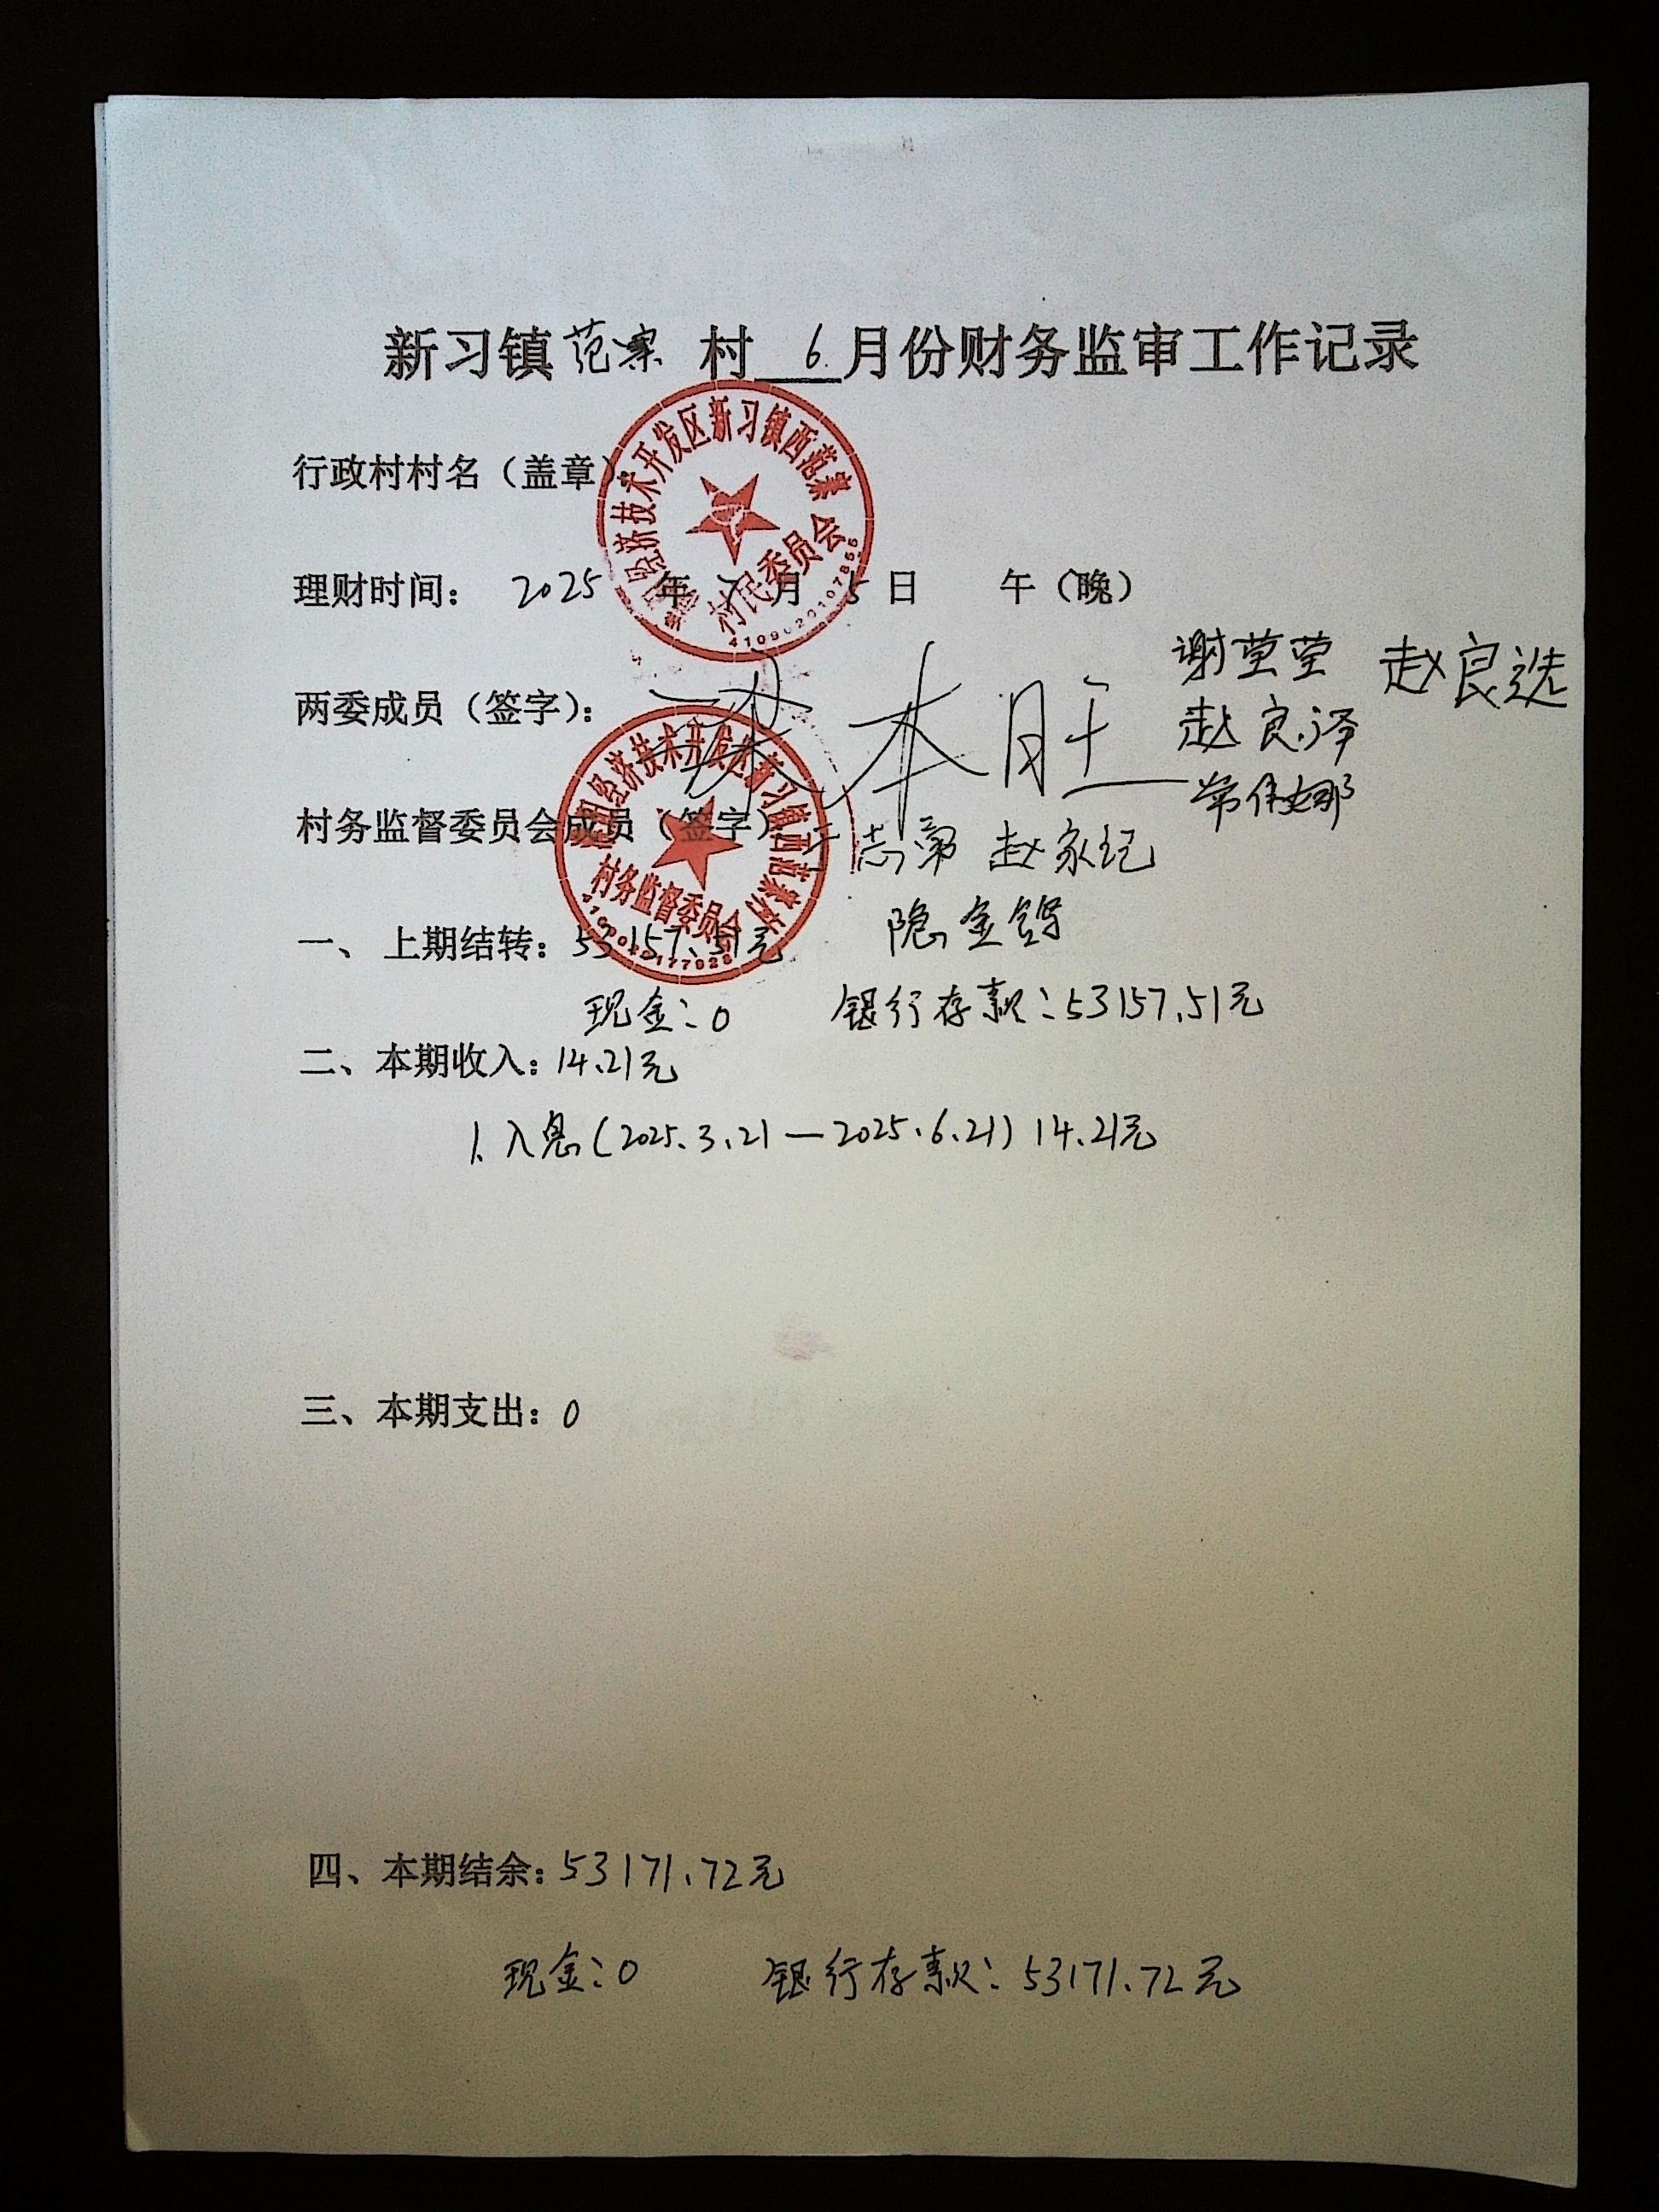 新习镇范寨 村 6 月份财务监审工作记录
行政村村名（盖章）
经济技术开发区新习镇西范寨
村民委员会
理财时间： 2025 年 7 月 5 日 午（晚）
谢莹莹 赵良选
两委成员（签字）： 本旺 赵良泽
常伟娜
村务监督委员会成员（签字） 志 赵家纪
经济技术开发区新习镇西范寨村
村务监督委员会
隐金
一、 上期结转：53157.51元
现金：0 银行存款：53157.51元
二、本期收入：14.21元
1.入息(2025.3.21—2025.6.21) 14.21元
三、本期支出：0
四、本期结余：53171.72元
现金：0 银行存款：53171.72元